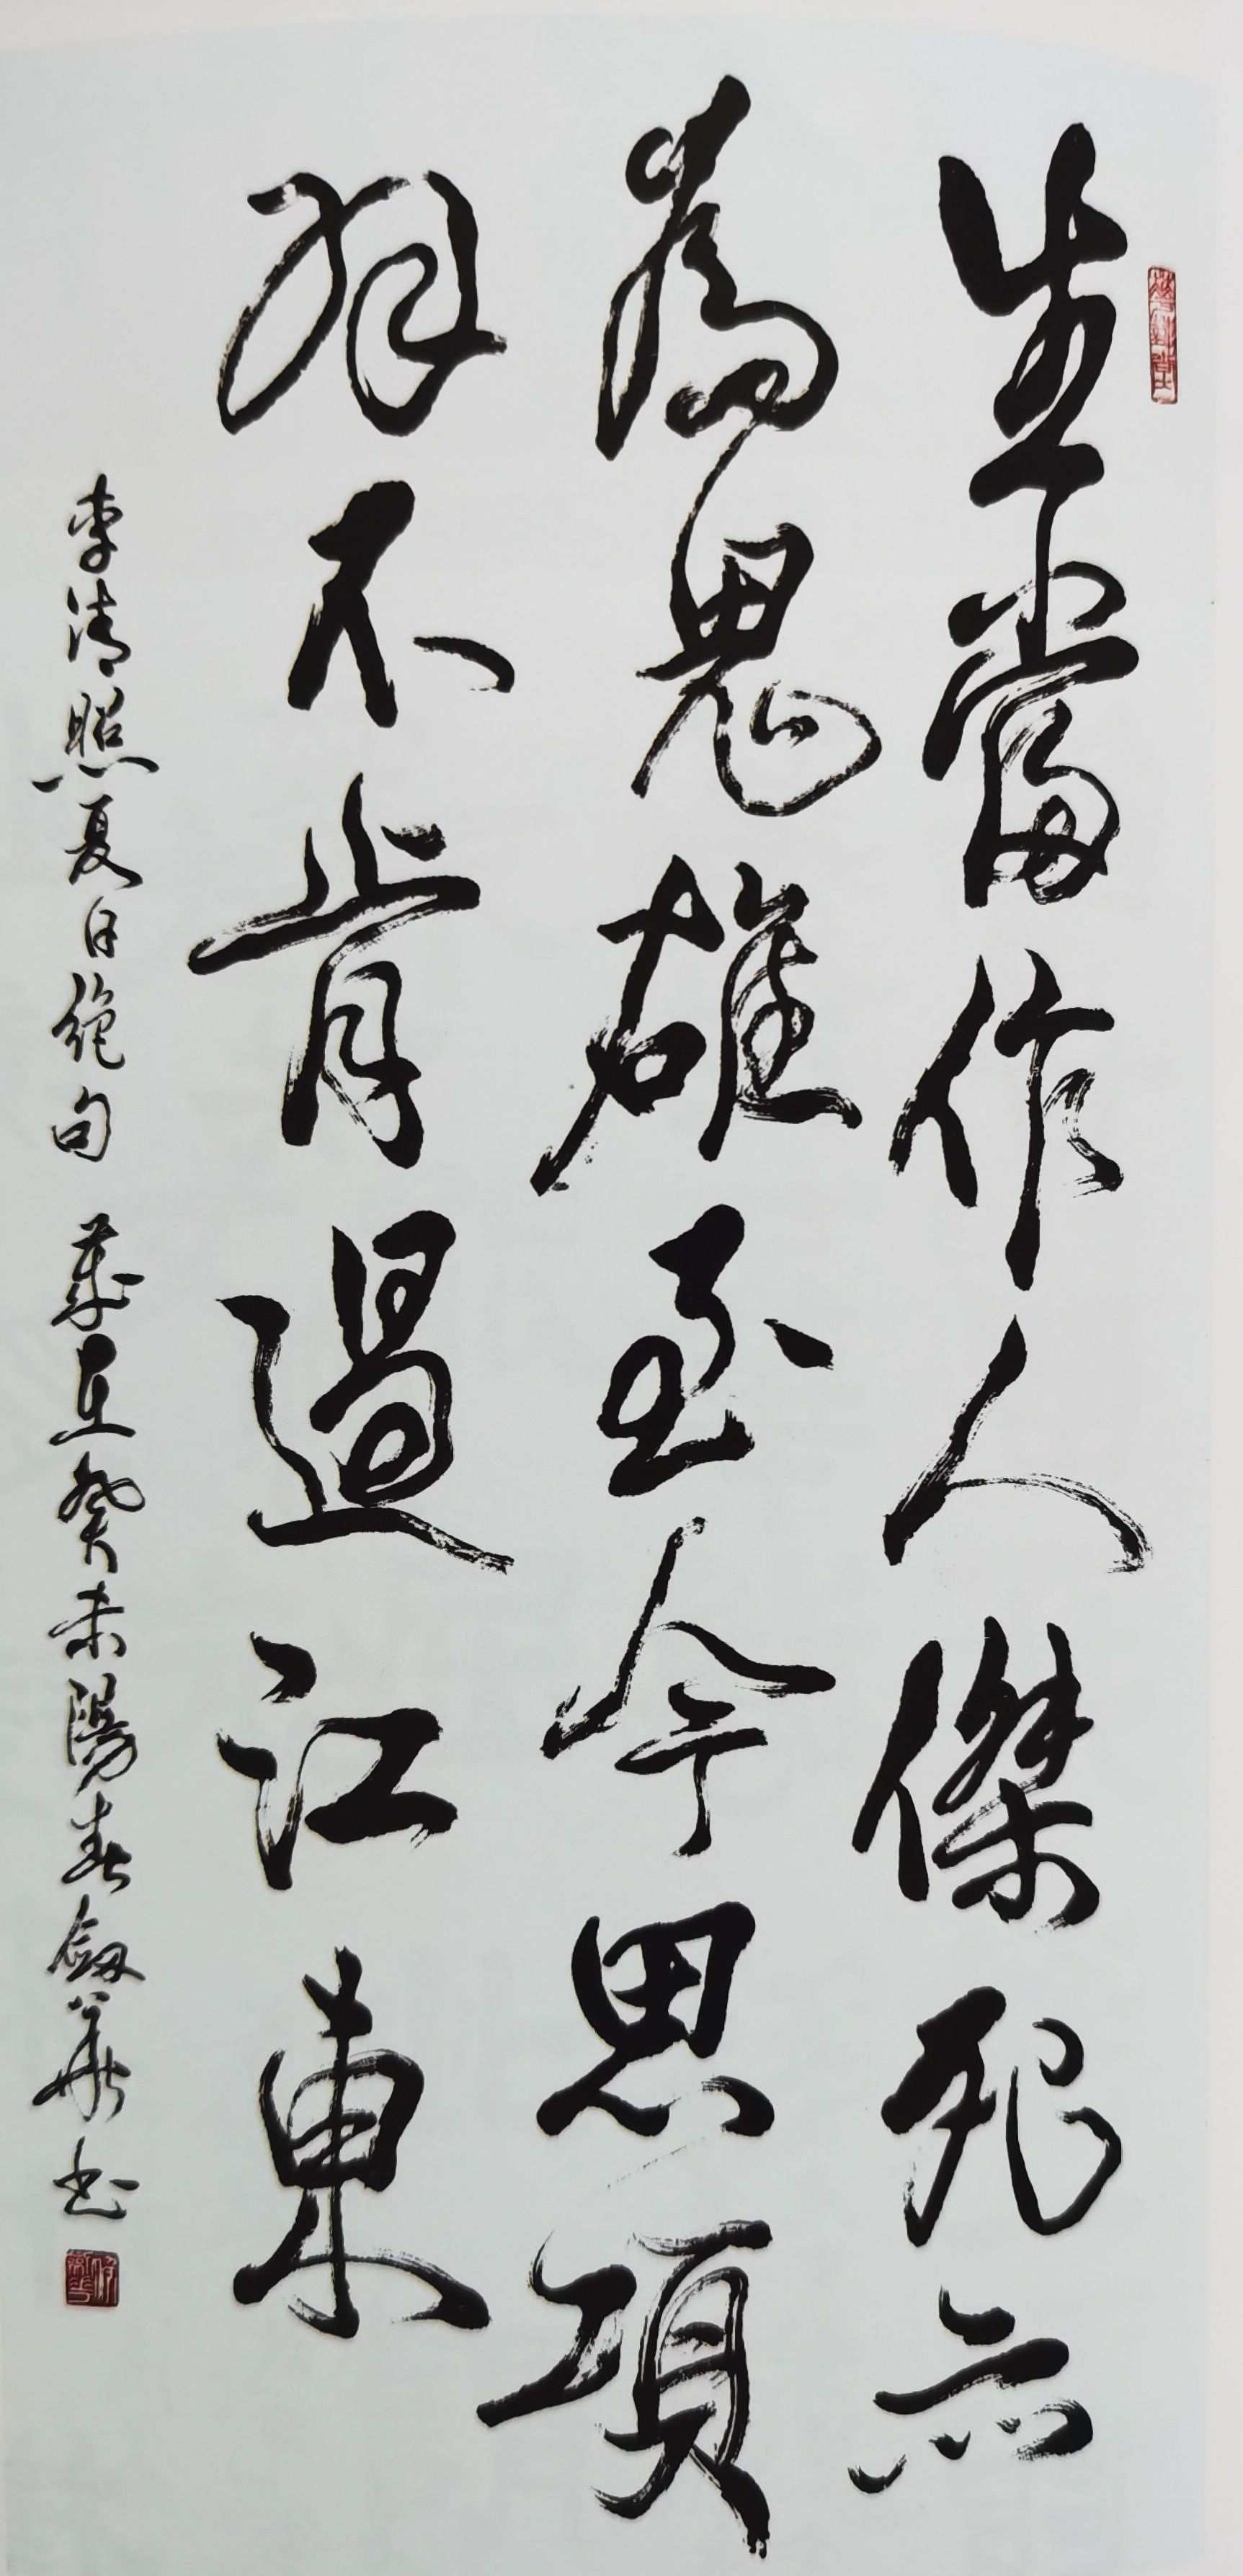 生當作人傑死亦
為鬼雄至今思項
羽不肯過江東
李清照夏日絕句 歲在癸未陽春劍華書